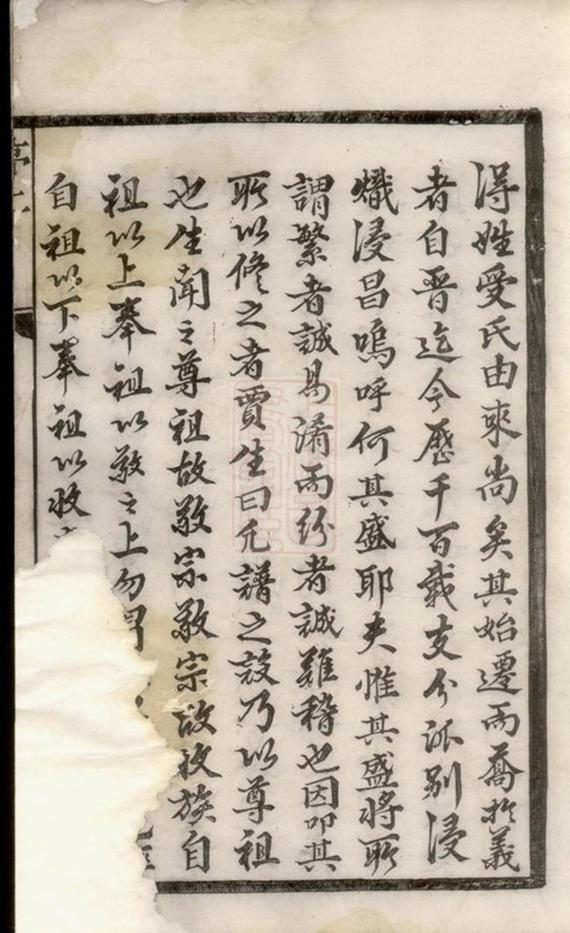 得姓受氏由來尚矣其始遷而喬扵義
者自晋迄今歷千百載支分派别浸
熾浸昌嗚呼何其盛耶夫惟其盛將所
謂繁者誠易淆而紛者誠難稽也因叩其
所以修之者賈生曰凢譜之設乃以尊祖
也生聞之尊祖故敬宗敬宗故收族自
祖以上奉祖以敬之上勿
自祖以下奉祖以收